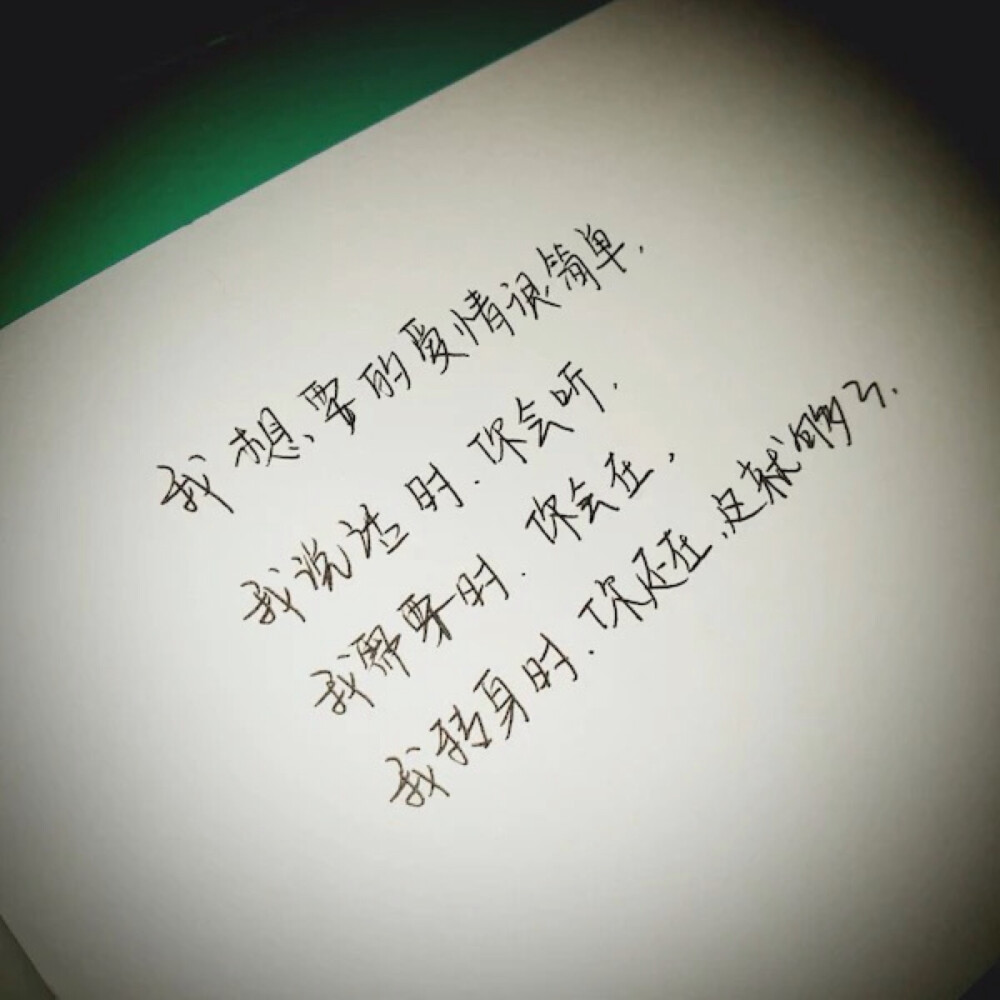 我想要的爱情很简单.
我说话时.你会听.
我需要时.你会在,
我转身时.你还在,这就够了.